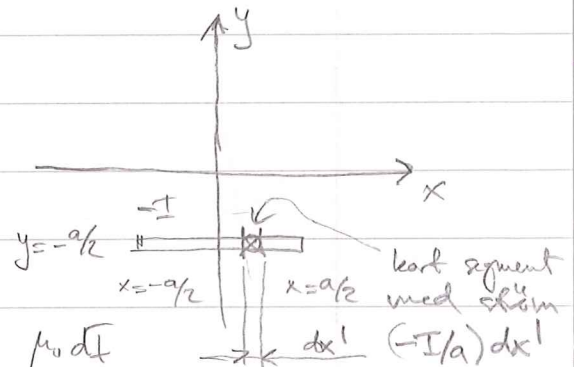 y
x
-I
y=-a/2
x=-a/2
x=a/2
kort segment
med ström
μ₀ dI
dx'
(-I/a)dx'